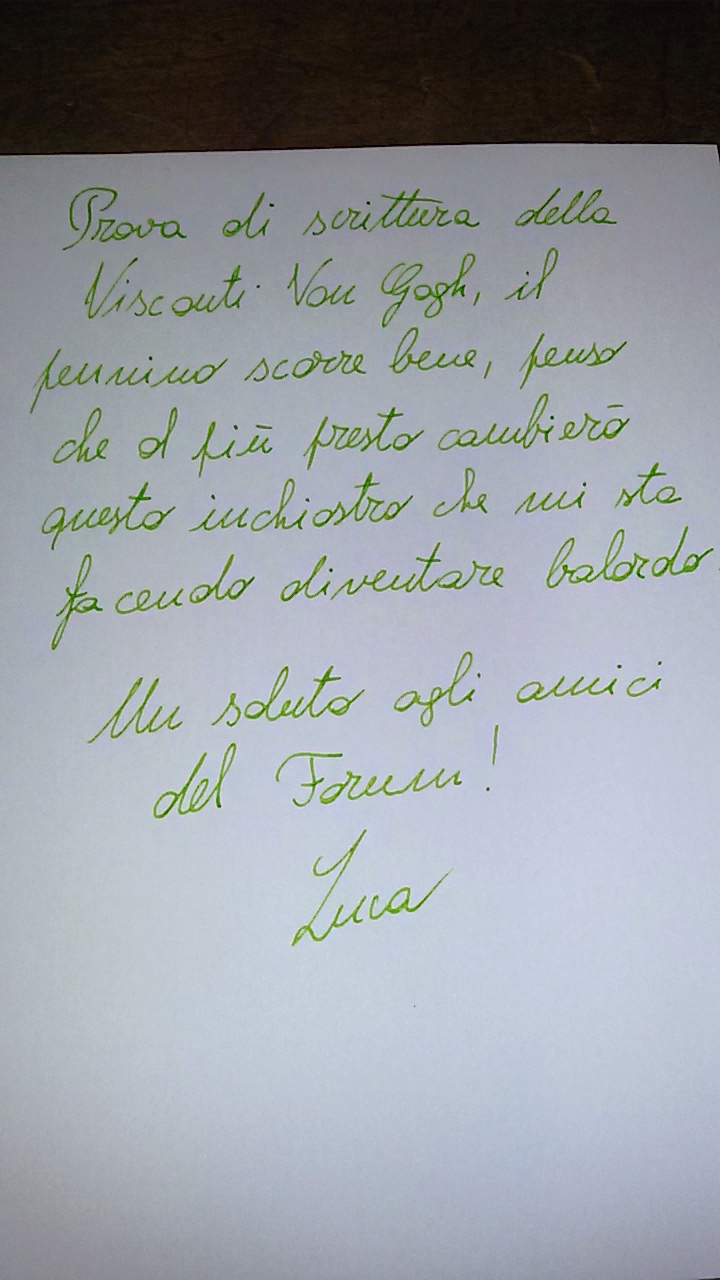 Prova di scrittura della
Visconti Van Gogh, il
pennino scorre bene, penso
che al più presto cambierò
questo inchiostro che mi sta
facendo diventare balordo.
Un saluto agli amici
del Forum!
Luca